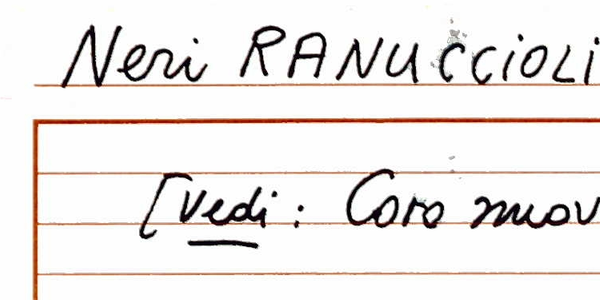 Neri RANUCCIOLI
[Vedi: Coro nuov